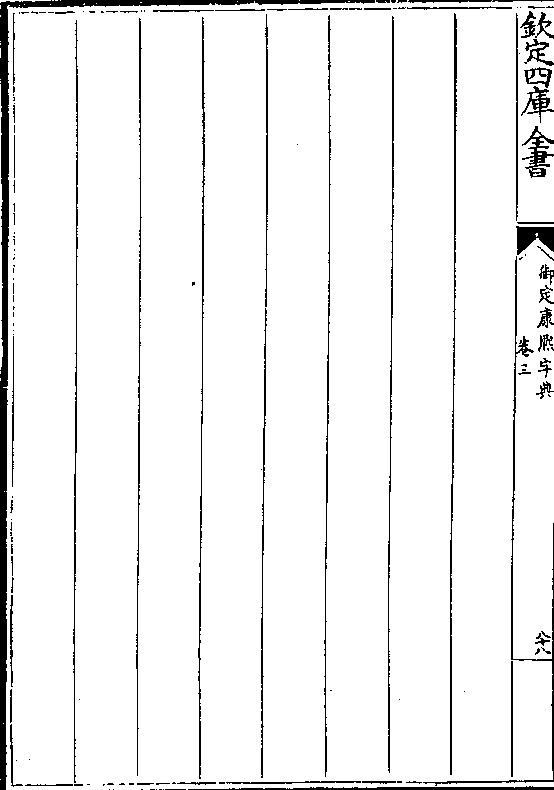 欽定四庫全書
御定康熙字典
卷三
六十八